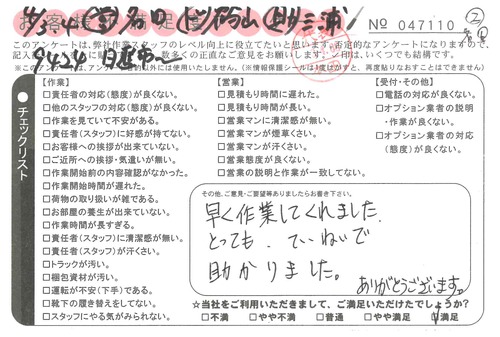 No 047110 ②
このアンケートは、弊社作業スタッフのレベル向上に役立てたいと思います。否定的なアンケートになりますので、
チェックリスト
【作業】
□責任者の対応(態度)が良くない。
□他のスタッフの対応(態度)が良くない。
□作業を見ていて不安がある。
□責任者(スタッフ)に好感が持てない。
□お客様への挨拶が出来ていない。
□ご近所への挨拶・気遣いが無い。
□作業開始前の内容確認がなかった。
□作業開始時間が遅れた。
□荷物の取り扱いが雑である。
□お部屋の養生が出来ていない。
□作業時間が長すぎる。
□責任者(スタッフ)に清潔感が無い。
□責任者(スタッフ)が汗くさい。
□トラックが汚い。
□梱包資材が汚い。
□運転が不安(下手)である。
□靴下の履き替えをしてない。
□スタッフにやる気がみられない。
【営業】
□見積もり時間に遅れた。
□見積もり時間が長い。
□営業マンに清潔感が無い。
□営業マンが煙草くさい。
□営業マンが汗くさい。
□営業態度が良くない。
□営業の説明と作業が一致してない。
【受付・その他】
□電話の対応が良くない。
□オプション業者の説明
・作業が良くない。
□オプション業者の対応
(態度)が良くない。
その他、ご意見・ご要望等ありましたらお書き下さい。
早く作業してくれました.
とっても、ていねいで
助かりました。
ありがとうございます。
☆当社をご利用いただきまして、ご満足いただけたでしょうか?
□不満 □やや不満 □普通 □やや満足 □満足